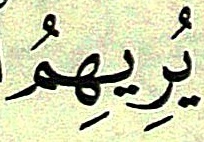 يُرِيهِمُ